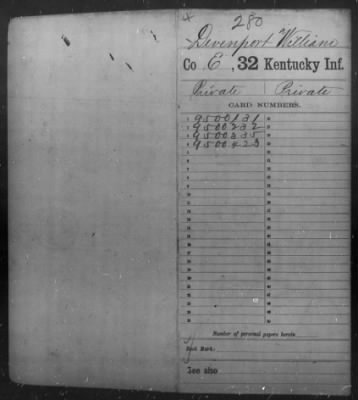 280
Devenport William
Co E, 32 Kentucky Inf.
Private | Private
CARD NUMBERS.
1 9500131
2 9500232
3 9500335
4 9500423
Number of personal papers herein
Book Mark:
See also